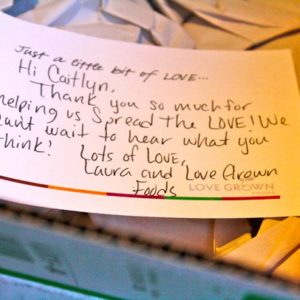 Just a little bit of LOVE...
Hi Caitlyn,
Thank you so much for
helping us Spread the LOVE! We
can't wait to hear what you
think!
Lots of Love,
Laura and Love Grown
Foods
LOVE GROWN
FOODS